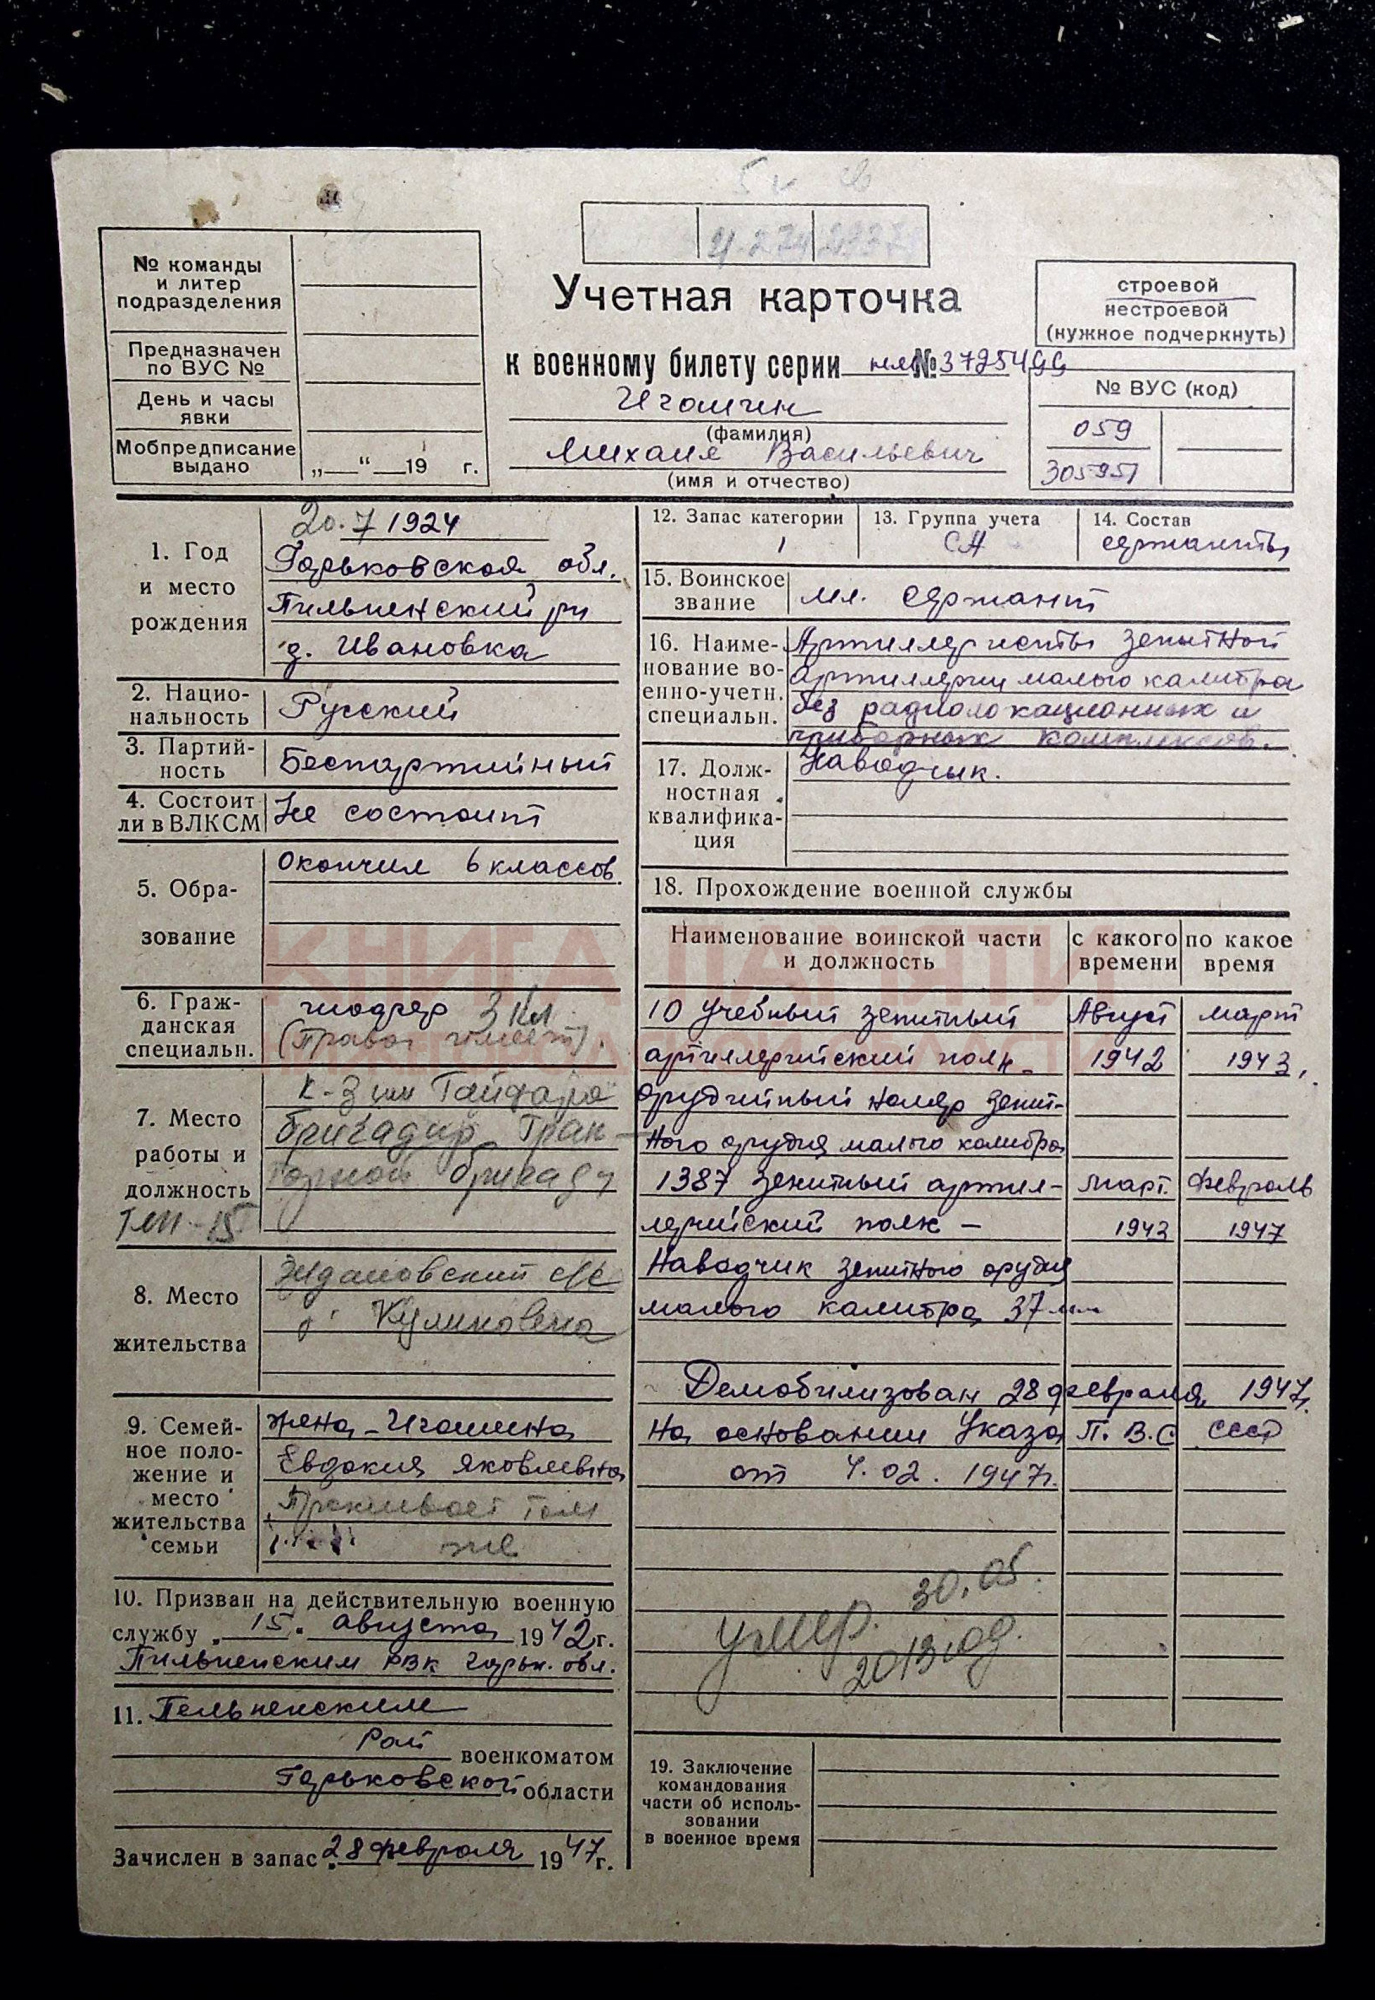 № команды
и литер
подразделения
Предназначен
по ВУС №
День и часы
явки
Мобпредписание
выдано „ “ 19 г.
Учетная карточка
к военному билету серии №
Игошин
(фамилия)
Михаил Васильевич
(имя и отчество)
строевой
нестроевой
(нужное подчеркнуть)
№ ВУС (код)
059
305951
1. Год
и место
рождения
20.7 1924
Горьковская обл.
Пильненский рн
д. Ивановка
2. Нацио-
нальность
Русский
3. Партий-
ность
Беспартийный
4. Состоит
ли в ВЛКСМ
Не состоит
5. Обра-
зование
Окончил 6 классов.
6. Граж-
данская
специальн.
шофер 3 Кл
(Права имеет).
7. Место
работы и
должность
к-з им Гайдара
бригадир Трак-
торной бригады
8. Место
жительства
Ждановский с/с
Куликовка
9. Семей-
ное поло-
жение и
место
жительства
семьи
жена - Игошина
Евдокия Яковлевна
Проживает там
же
10. Призван на действительную военную
службу „15“ августа 1942 г.
Пильненским РВК Горьк. обл.
11. Пильненским
Рай военкоматом
Горьковской области
Зачислен в запас „28 февраля 1947 г.
12. Запас категории
1
13. Группа учета
СА
14. Состав
сержанты
15. Воинское
звание
мл. сержант
16. Наиме-
нование во-
енно-учетн.
специальн.
Артиллеристы зенитной
артиллерии малого калибра
без радиолокационных и
приборных комплексов.
17. Долж-
ностная
квалифика-
ция
Наводчик.
18. Прохождение военной службы
Наименование воинской части
и должность
с какого
времени
по какое
время
10 учебный зенитный Август март
артиллерийский полк- 1942 1943,
орудийный номер зенит-
ного орудия малого калибра
1387 зенитный артил- март. февраль
лерийский полк - 1943 1947
Наводчик зенитного орудия
малого калибра 37 мм
Демобилизован 28 февраля 1947г.
На основании Указа П.В.С СССР
от 4.02.1947г.
умер. 30.05.
2013 год.
19. Заключение
командования
части об исполь-
зовании
в военное время
КНИГА ПАМЯТИ
НИЖЕГОРОДСКОЙ ОБЛАСТИ